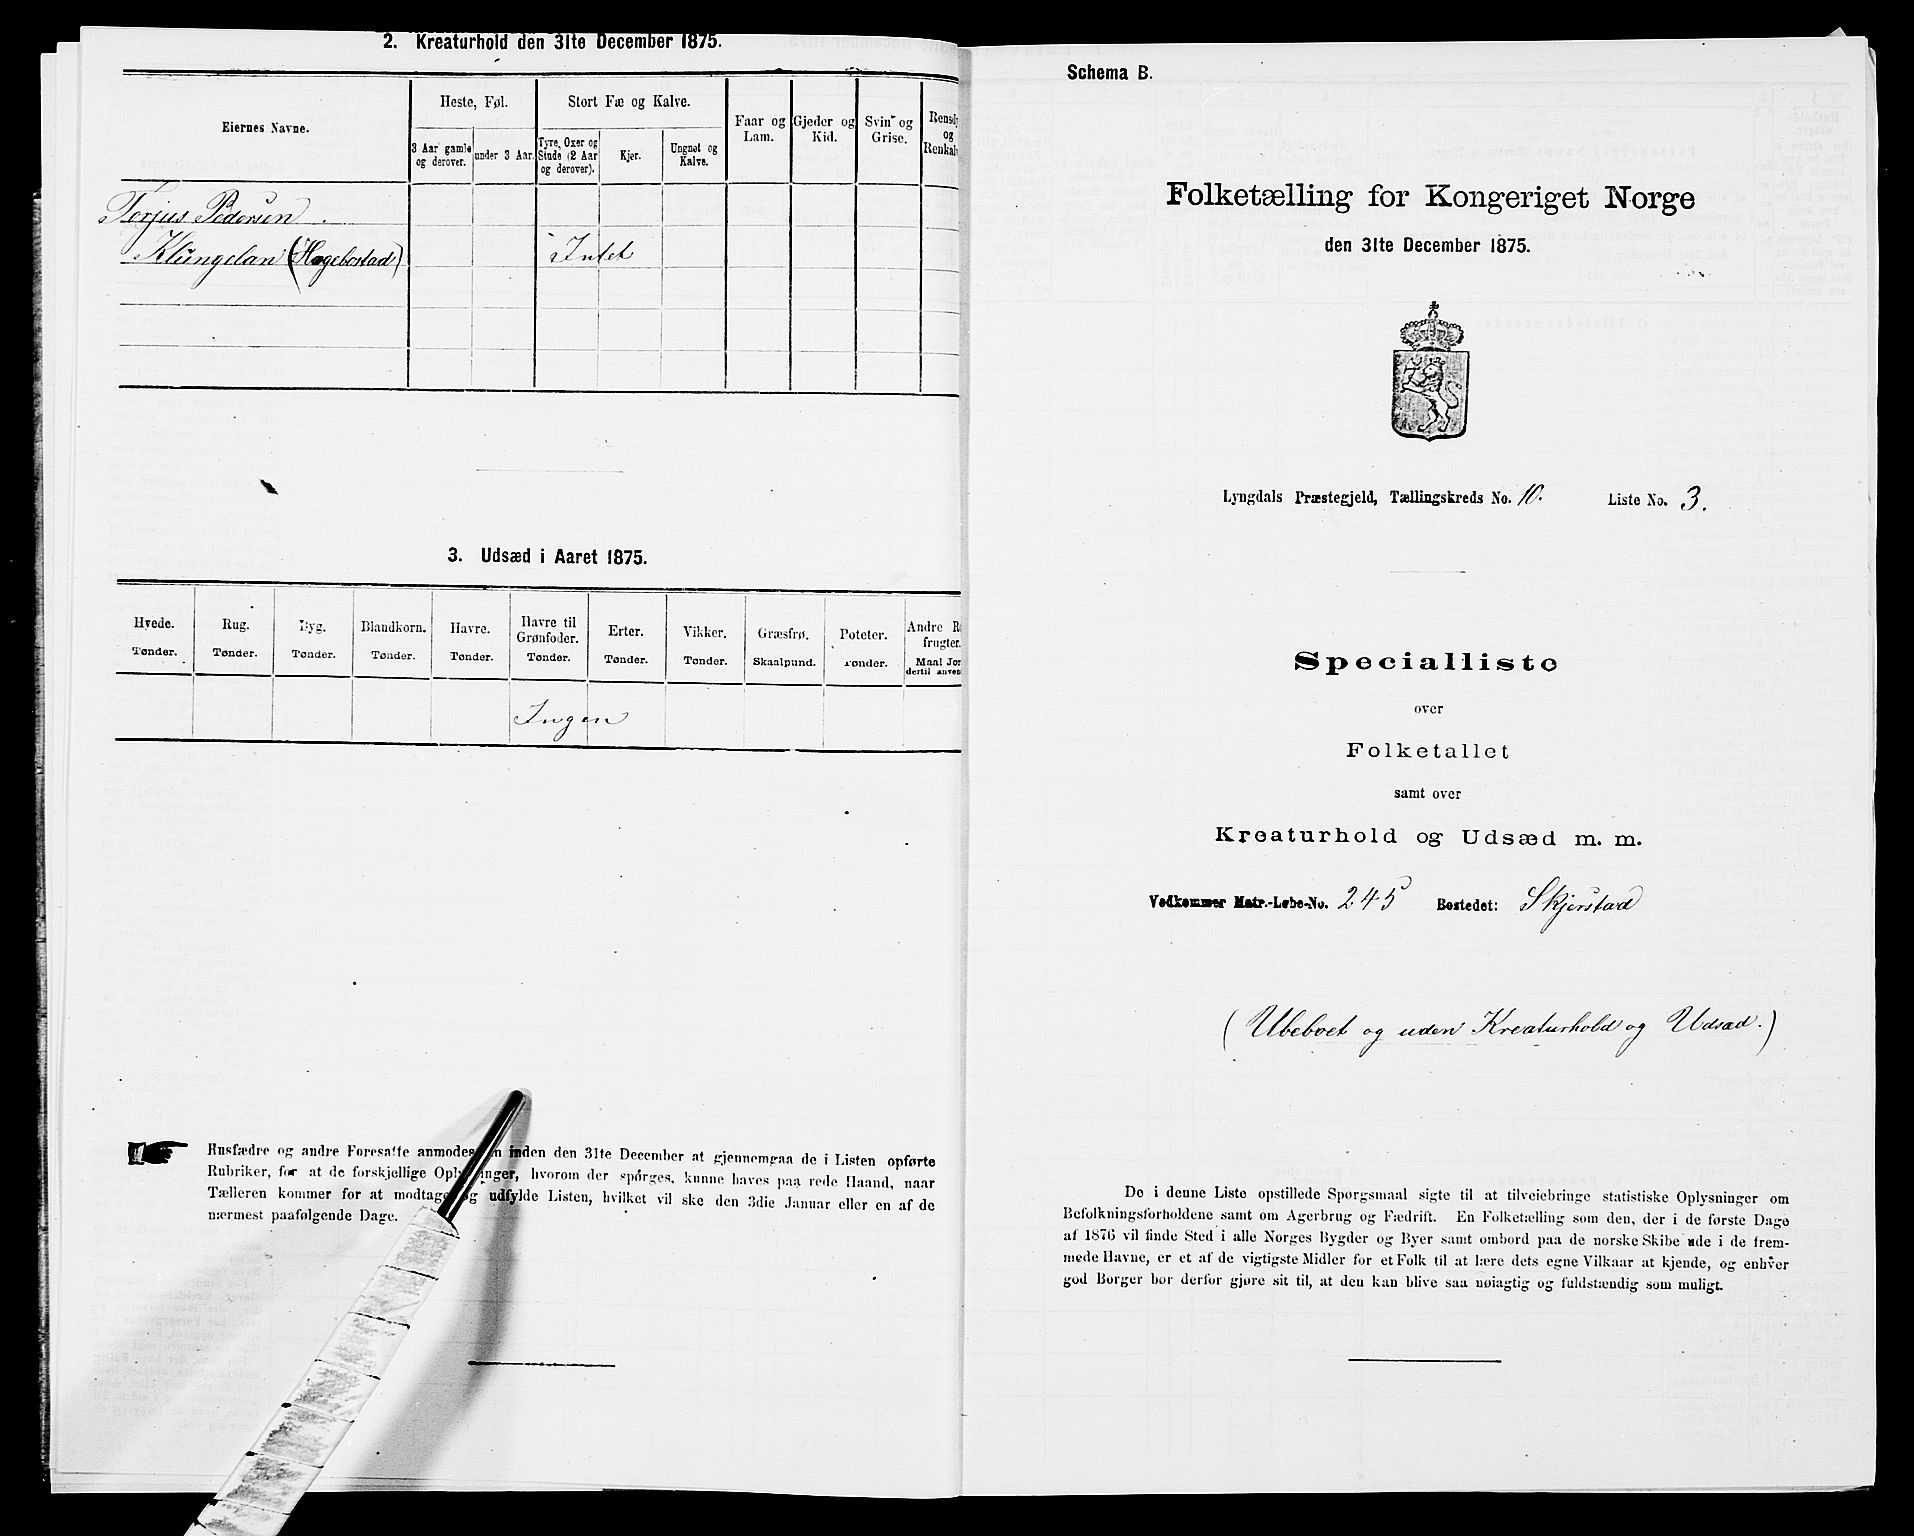 2. Kreaturhold den 31te December 1875.
Eiernes Navne.
Heste, Føl.
3 Aar gamle og derover.
under 3 Aar.
Stort Fæ og Kalve.
Tyre, Oxer og Stude (2 Aar og derover).
Kjør.
Ungnøt og Kalve.
Faar og Lam.
Gjeder og Kid.
Svin og Grise.
Rensdy
og
Renkalv
Terjus Pedersen
Klungelan (Hægebostad)
Intet
3. Udsæd i Aaret 1875.
Hvede. Tønder.
Rug. Tønder.
Byg. Tønder.
Blandkorn. Tønder.
Havre. Tønder.
Havre til Grønfoder. Tønder.
Erter. Tønder.
Vikker. Tønder.
Græsfrø. Skaalpund.
Poteter. Tønder.
Andre R
frugter.
Maal Jor
dertil anven
Ingen
Husfædre og andre Foresatte anmodes inden den 31te December at gjennemgaa de i Listen opførte
Rubriker, for at de forskjellige Oplysninger, hvorom der spørges, kunne haves paa rede Haand, naar
Tælleren kommer for at modtage og udfylde Listen, hvilket vil ske den 3die Januar eller en af de
nærmest paafølgende Dage.
Schema B.
Folketælling for Kongeriget Norge
den 31te December 1875.
Lyngdals Præstegjeld, Tællingskreds No. 10. Liste No. 3.
Specialliste
over
Folketallet
samt over
Kreaturhold og Udsæd m. m.
Vedkommer Matr.-Løbe-No. 245 Bostedet: Skjerstad
(Ubeboet og uden Kreaturhold og Udsæd.)
De i denne Liste opstillede Spørgsmaal sigte til at tilveiebringe statistiske Oplysninger om
Befolkningsforholdene samt om Agerbrug og Fædrift. En Folketælling som den, der i de første Dage
af 1876 vil finde Sted i alle Norges Bygder og Byer samt ombord paa de norske Skibe ude i de frem-
mede Havne, er et af de vigtigste Midler for et Folk til at lære dets egne Vilkaar at kjende, og enhver
god Borger bør derfor gjøre sit til, at den kan blive saa nøiagtig og fuldstændig som muligt.